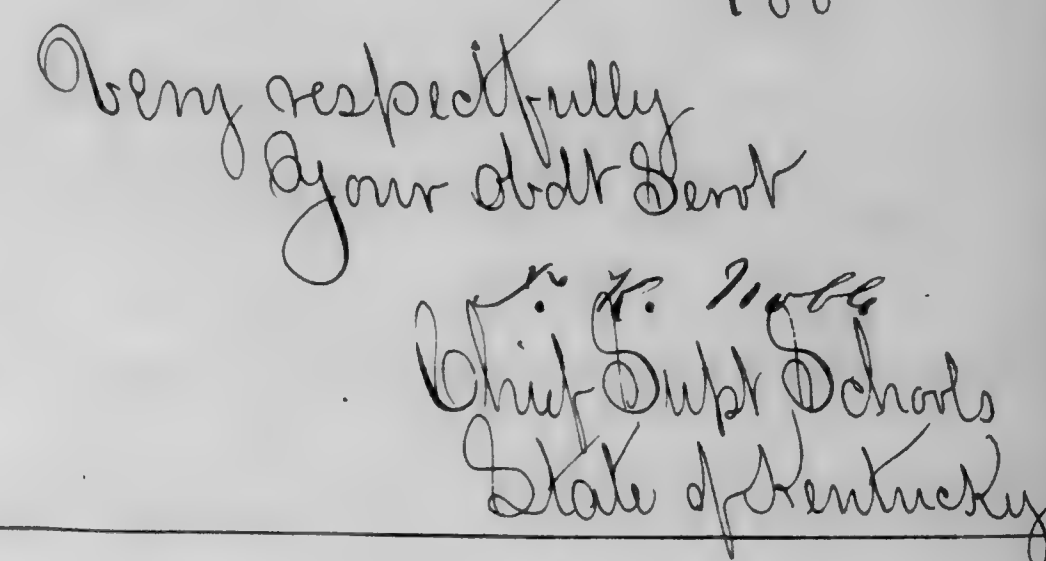 Very respectfully
Your obdt Servt
T. K. Noble
Chief Supt Schools
State of Kentucky